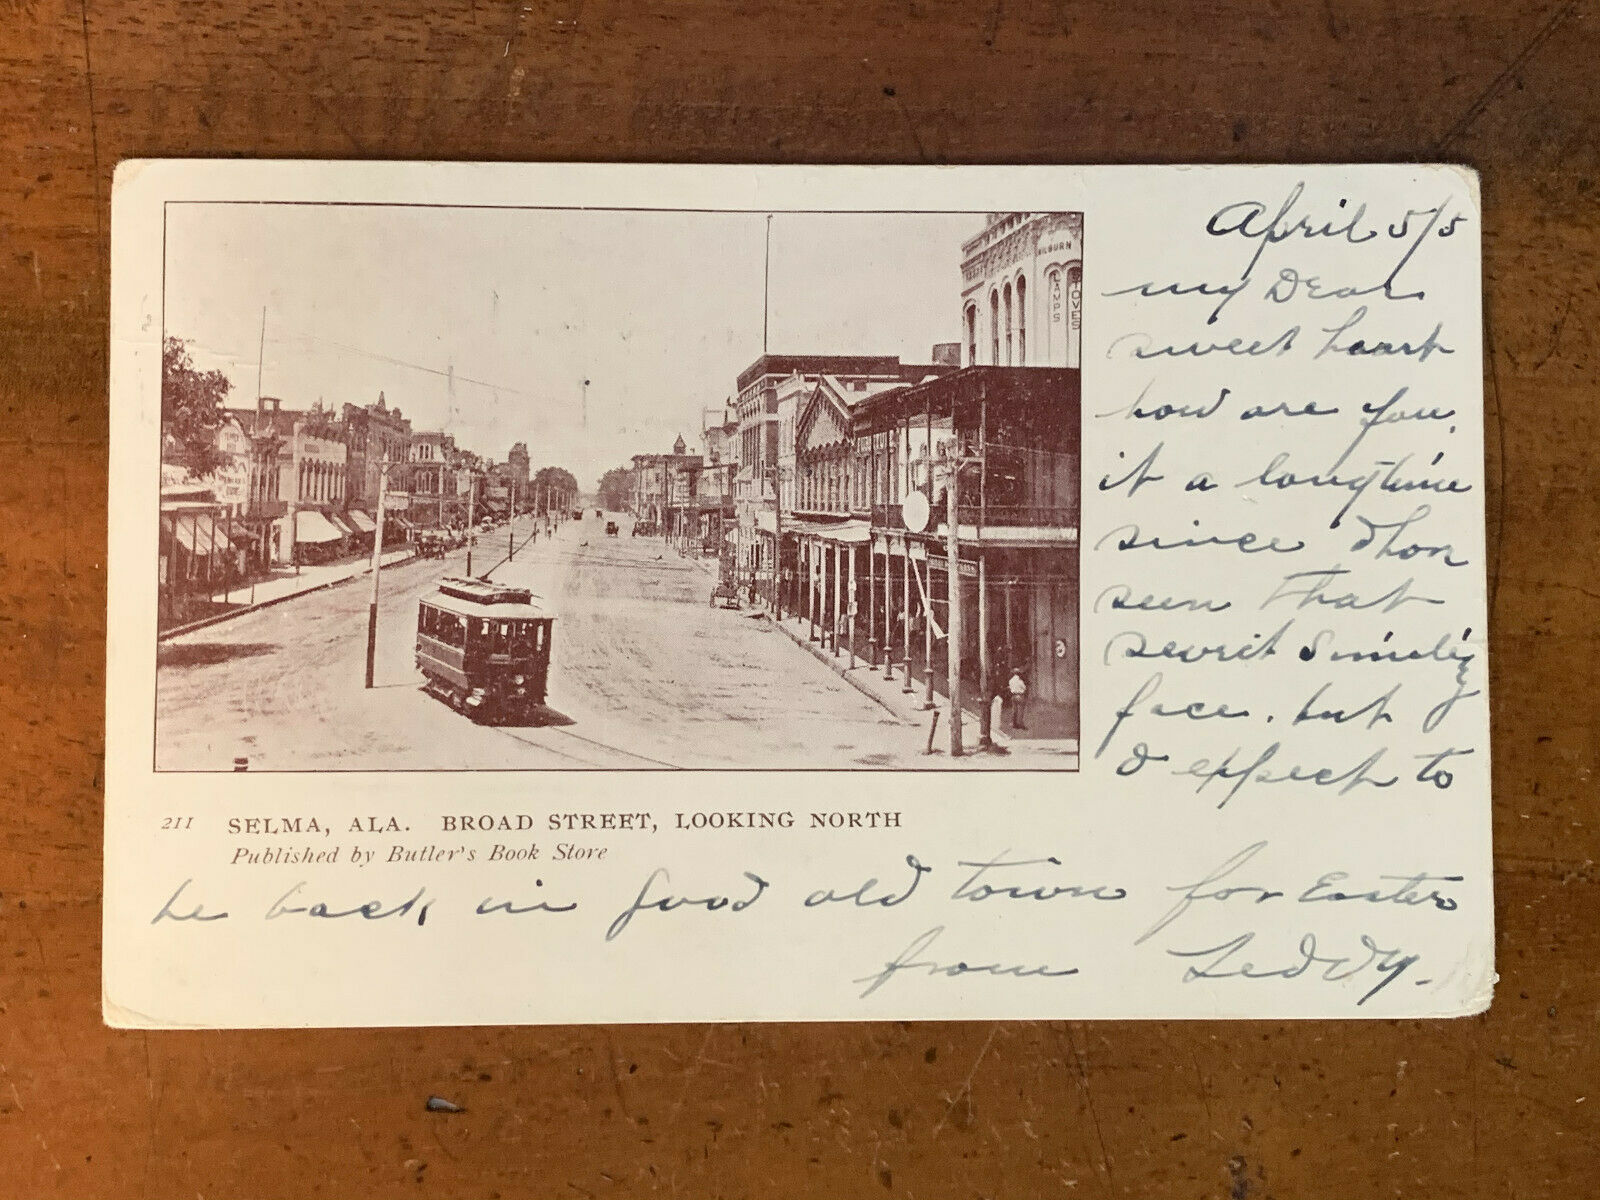 April 5/5
my Dear
sweet haart
how are you,
it a longtime
since I hav
seen that
swvit Smileing
face. but
I expect to
be back in good old town for Easter
from Teddy.
211 SELMA, ALA. BROAD STREET, LOOKING NORTH
Published by Butler's Book Store
LAMPS
STOVES